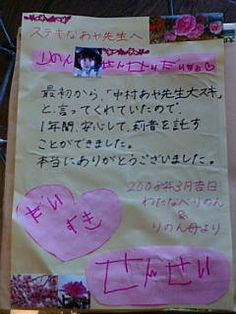 ステキなあや先生へ
せんせいだいすき
最初から、「中村あや先生大スキ」
と、言ってくれていたので、
1年間、安心して、莉音を託す
ことができました。
本当にありがとうございました。
だい
すき
2008年3月吉日
わたなべりのん
&
りのん母より
せんせい